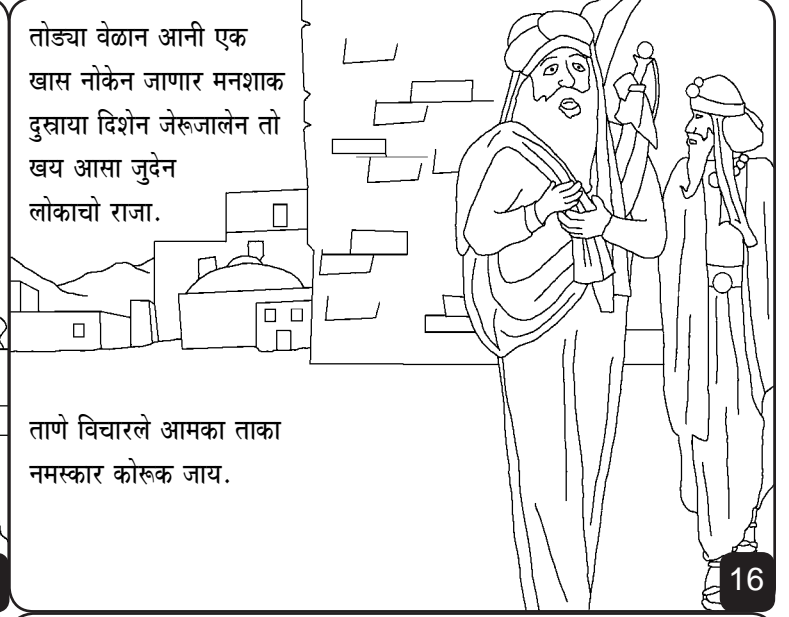 तोड्या वेळान आनी एक
खास नोकेन जाणार मनशाक
दुस्राया दिशेन जेरूजालेन तो
खय आसा जुदेन
लोकाचो राजा.
ताणे विचारले आमका ताका
नमस्कार कोरूक जाय.
16